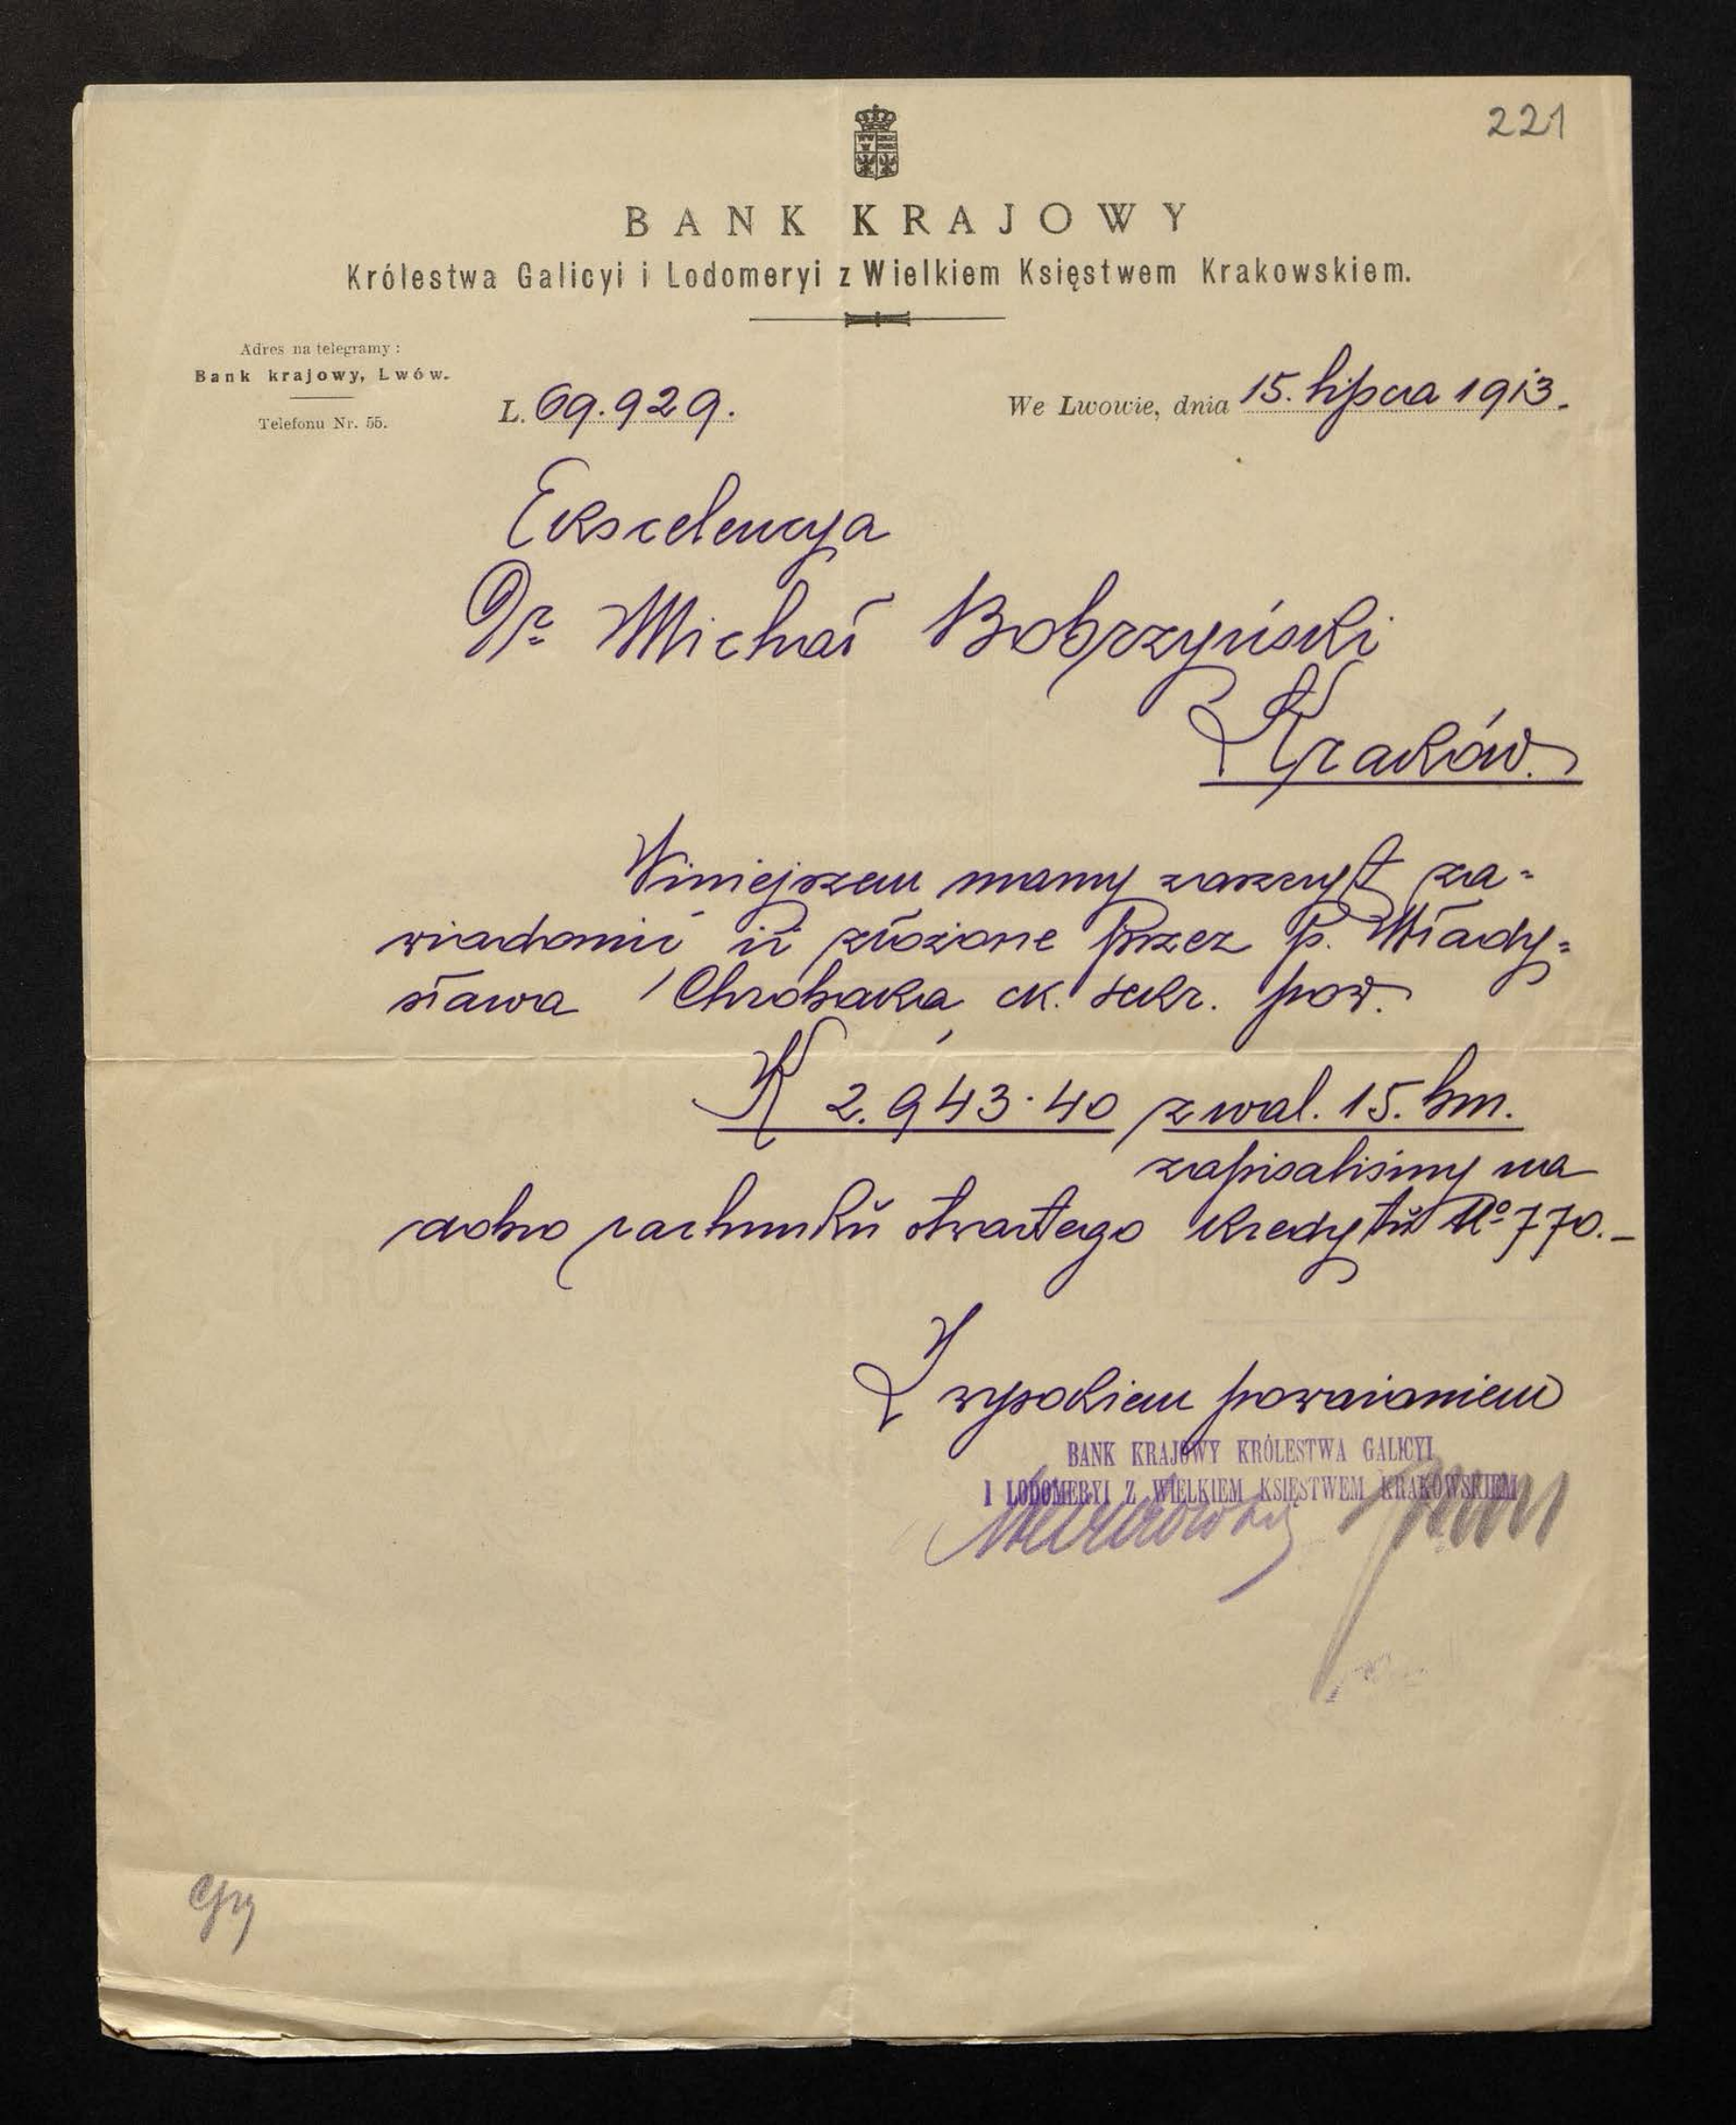 221
BANK KRAJOWY
Królestwa Galicyi i Lodomeryi z Wielkiem Księstwem Krakowskiem.
Adres na telegramy :
Bank krajowy, Lwów.
Telefonu Nr. 55.
L. 69.929.
We Lwowie, dnia 15. lipca 1913.
Ekscelencya
Dr. Michał Bobrzyński
Kraków.
Niniejszem mamy zaszczyt za=
wiadomić iż złożone przez p. Włady=
sława Chrobaka ck. sekr. pow.
K 2.943·40 z wal. 15. bm.
zapisaliśmy na
dobro rachunku otwartego kredytu No 770.—
Z wysokiem poważaniem
BANK KRAJOWY KRÓLESTWA GALICYI
I LODOMERYI Z WIELKIEM KSIĘSTWEM KRAKOWSKIEM